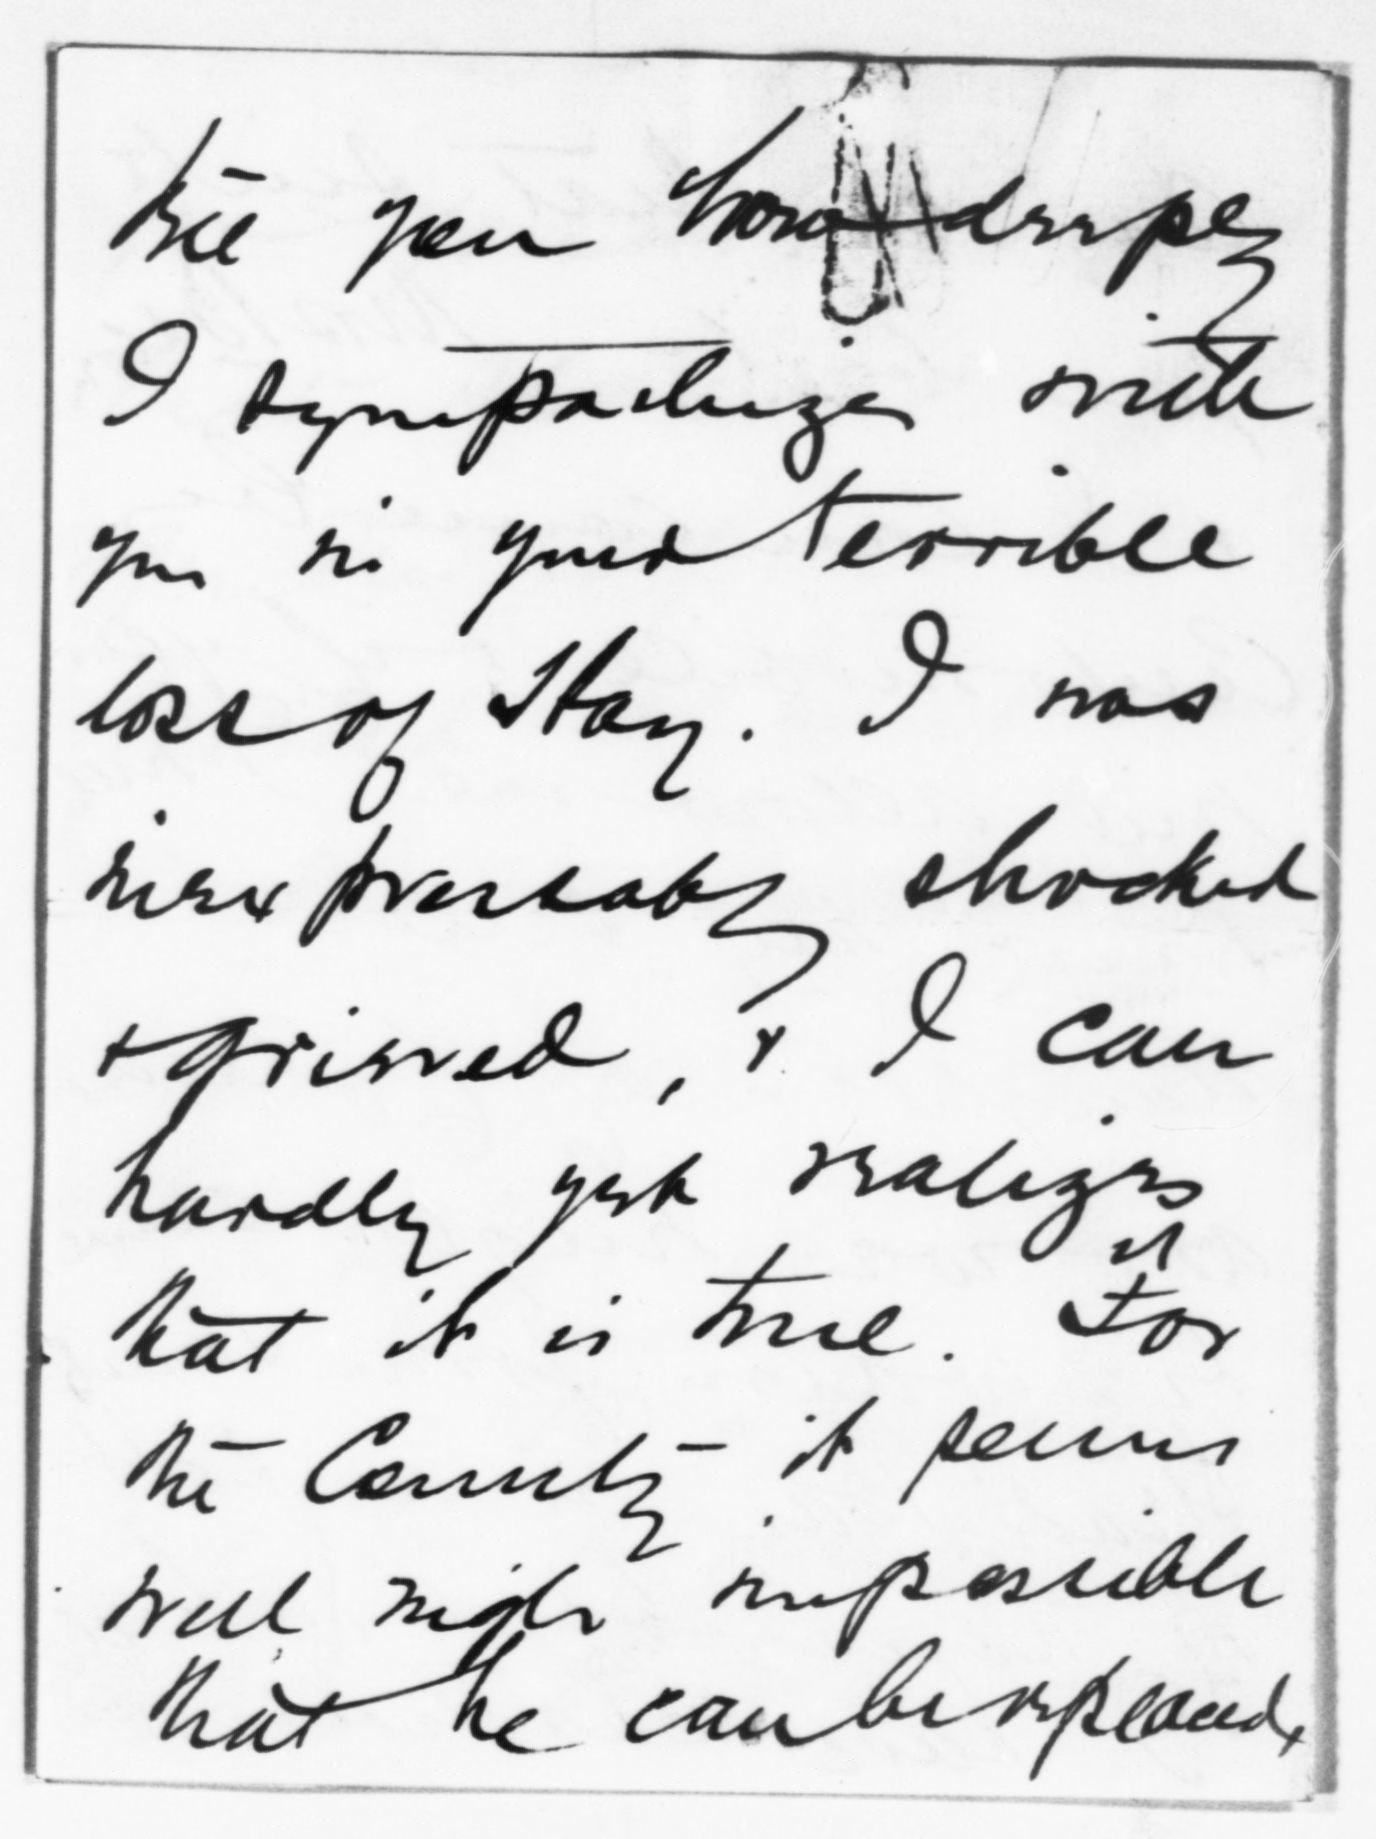 tell you how deeply
I sympathize with
you in your terrible
loss of Hay. I was
inexpressably shocked
& grieved, & I can
hardly yet realize
that it is true. For
the County it seems
well nigh impossible
that he can be replaced,